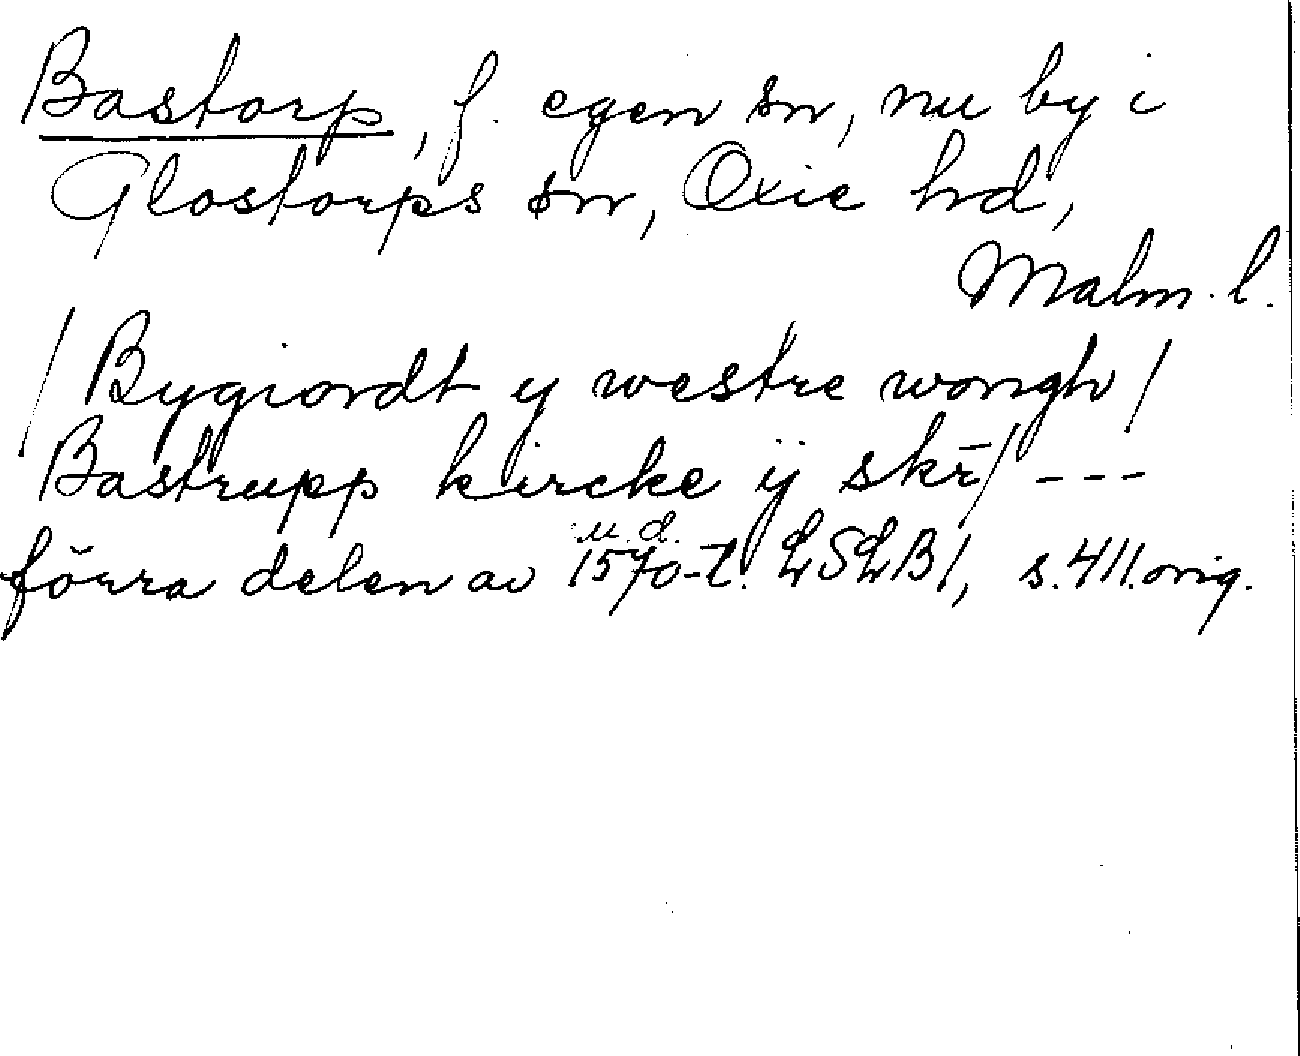 Bastorp, f. egen sn, nu by i
Glostorps sn, Oxie hd,
Malm. l.
/ Bygiordt y westre wongh /
Bastrupp kircke ÿ skr̄ / ---
u. d.
förra delen av 1570-t. LSLB 1, s. 411. orig.